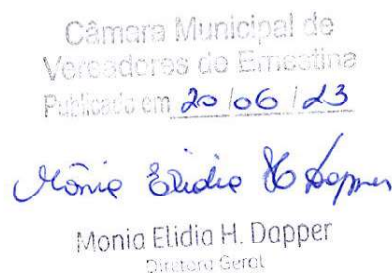 Câmara Municipal de
Vereadores de Ernestina
Publicado em 20/06/23
Mônia Elidia H Dapper
Monia Elidia H. Dapper
Diretora Geral